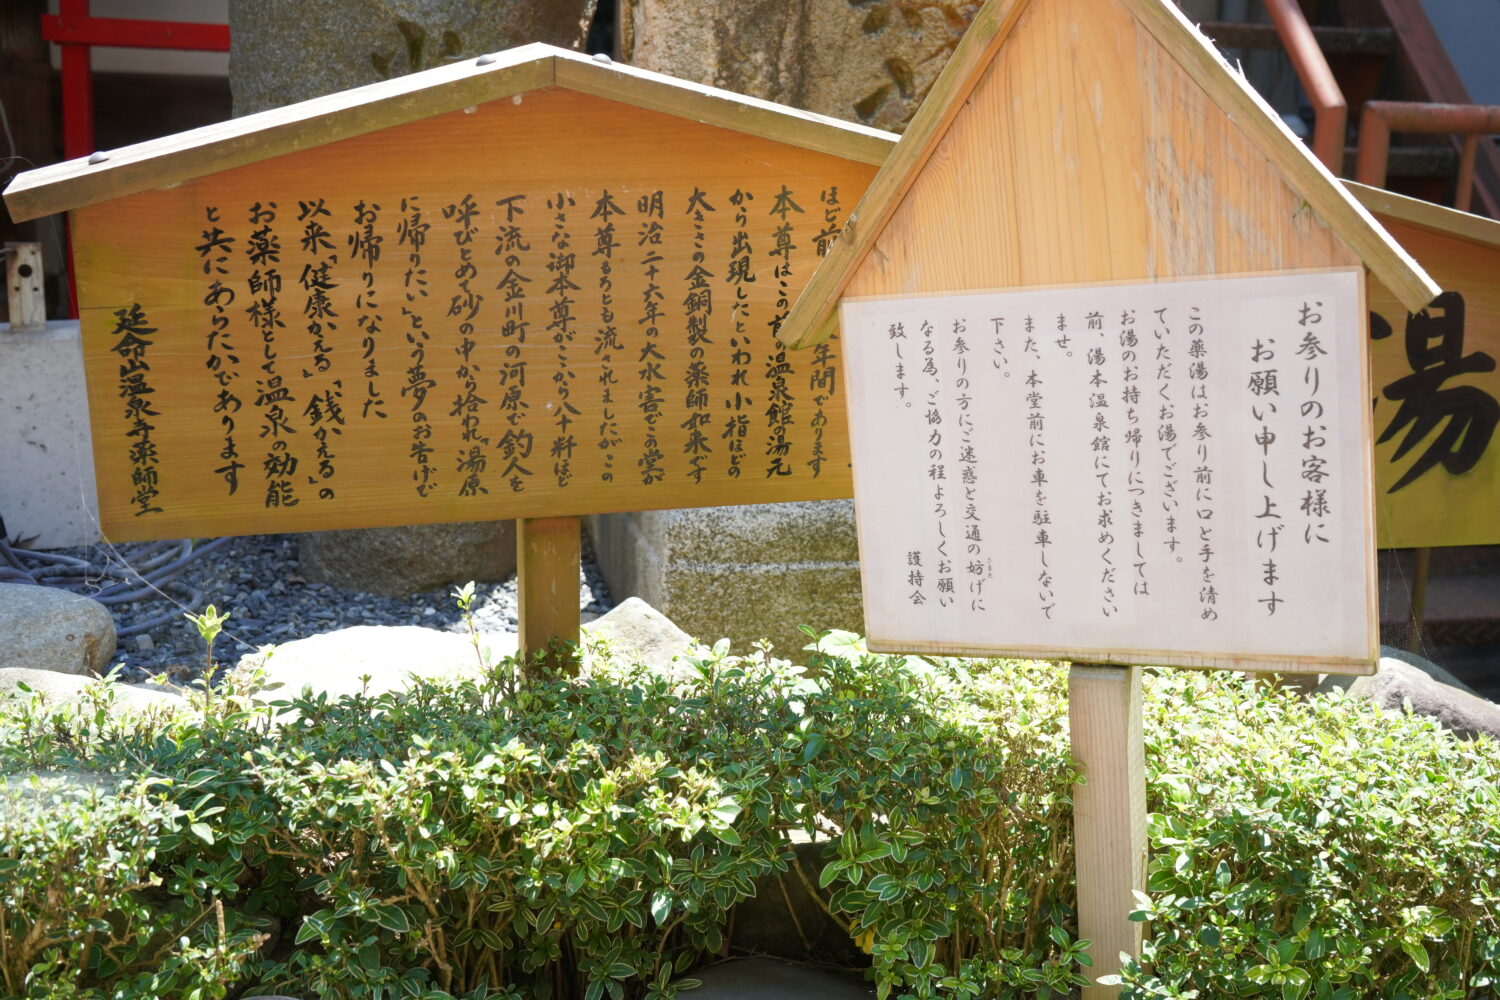 お参りのお客様に
お願い申し上げます
この薬湯はお参り前に口と手を清め
ていただくお湯でございます。
お湯のお持ち帰りにつきましては
前、湯本温泉館にてお求めください
ませ。
また、本堂前にお車を駐車しないで
下さい。
お参りの方にご迷惑と交通の妨げに
さまた
なる為、ご協力の程よろしくお願い
致します。
護持会
ほど前
年間であります
本尊はこの前の温泉館の湯元
から出現したといわれ小指ほどの
大きさの金銅製の薬師如来です
明治二十六年の大水害でこの堂が
本尊もろとも流されましたがこの
小さな御本尊がここから八十粁ほど
下流の金川町の河原で釣人を
呼びとめて砂の中から拾われ「湯原
に帰りたい」という夢のお告げで
お帰りになりました
以来「健康かえる」「銭かえる」の
お薬師様として温泉の効能
と共にあらたかであります
延命山温泉寺薬師堂
湯